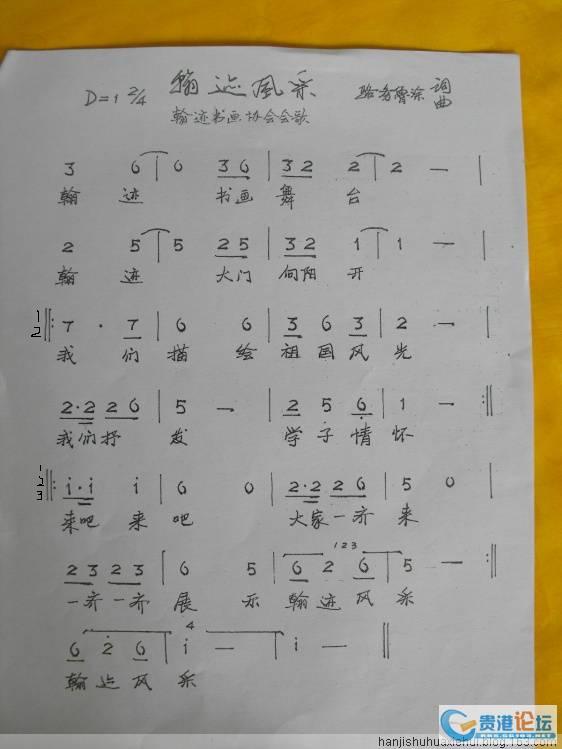 翰迹风采
D=1 2/4
翰迹书画协会会歌
词
曲
3 6 | 6 3 6 | 3 2 2 | 2 — |
翰 迹 书画 舞 台
2 5 | 5 2 5 | 3 2 1 | 1 — |
翰 迹 大门 向阳 开
1
2
‖: 7 · 7 | 6 6 | 3 6 3 | 2 — |
我 们 描 绘 祖 国 风 光
2·2 2 6 | 5 — | 2 5 6 | 1 — :‖
我们抒 发 学 子 情 怀
1
2
3
‖: i·i i | 6 0 | 2·2 2 6 | 5 0 |
来吧 来 吧 大家一齐 来
1 2 3
2 3 2 3 | 6 5 | 6 2 6 | 5 — :‖
一齐一齐 展 示 翰 迹 风 采
4
6 2 6 | i — | i — ‖
翰 迹 风 采
贵港论坛
WWW.GG163.NET
hanjishuhuaxiehui.blog.163.com